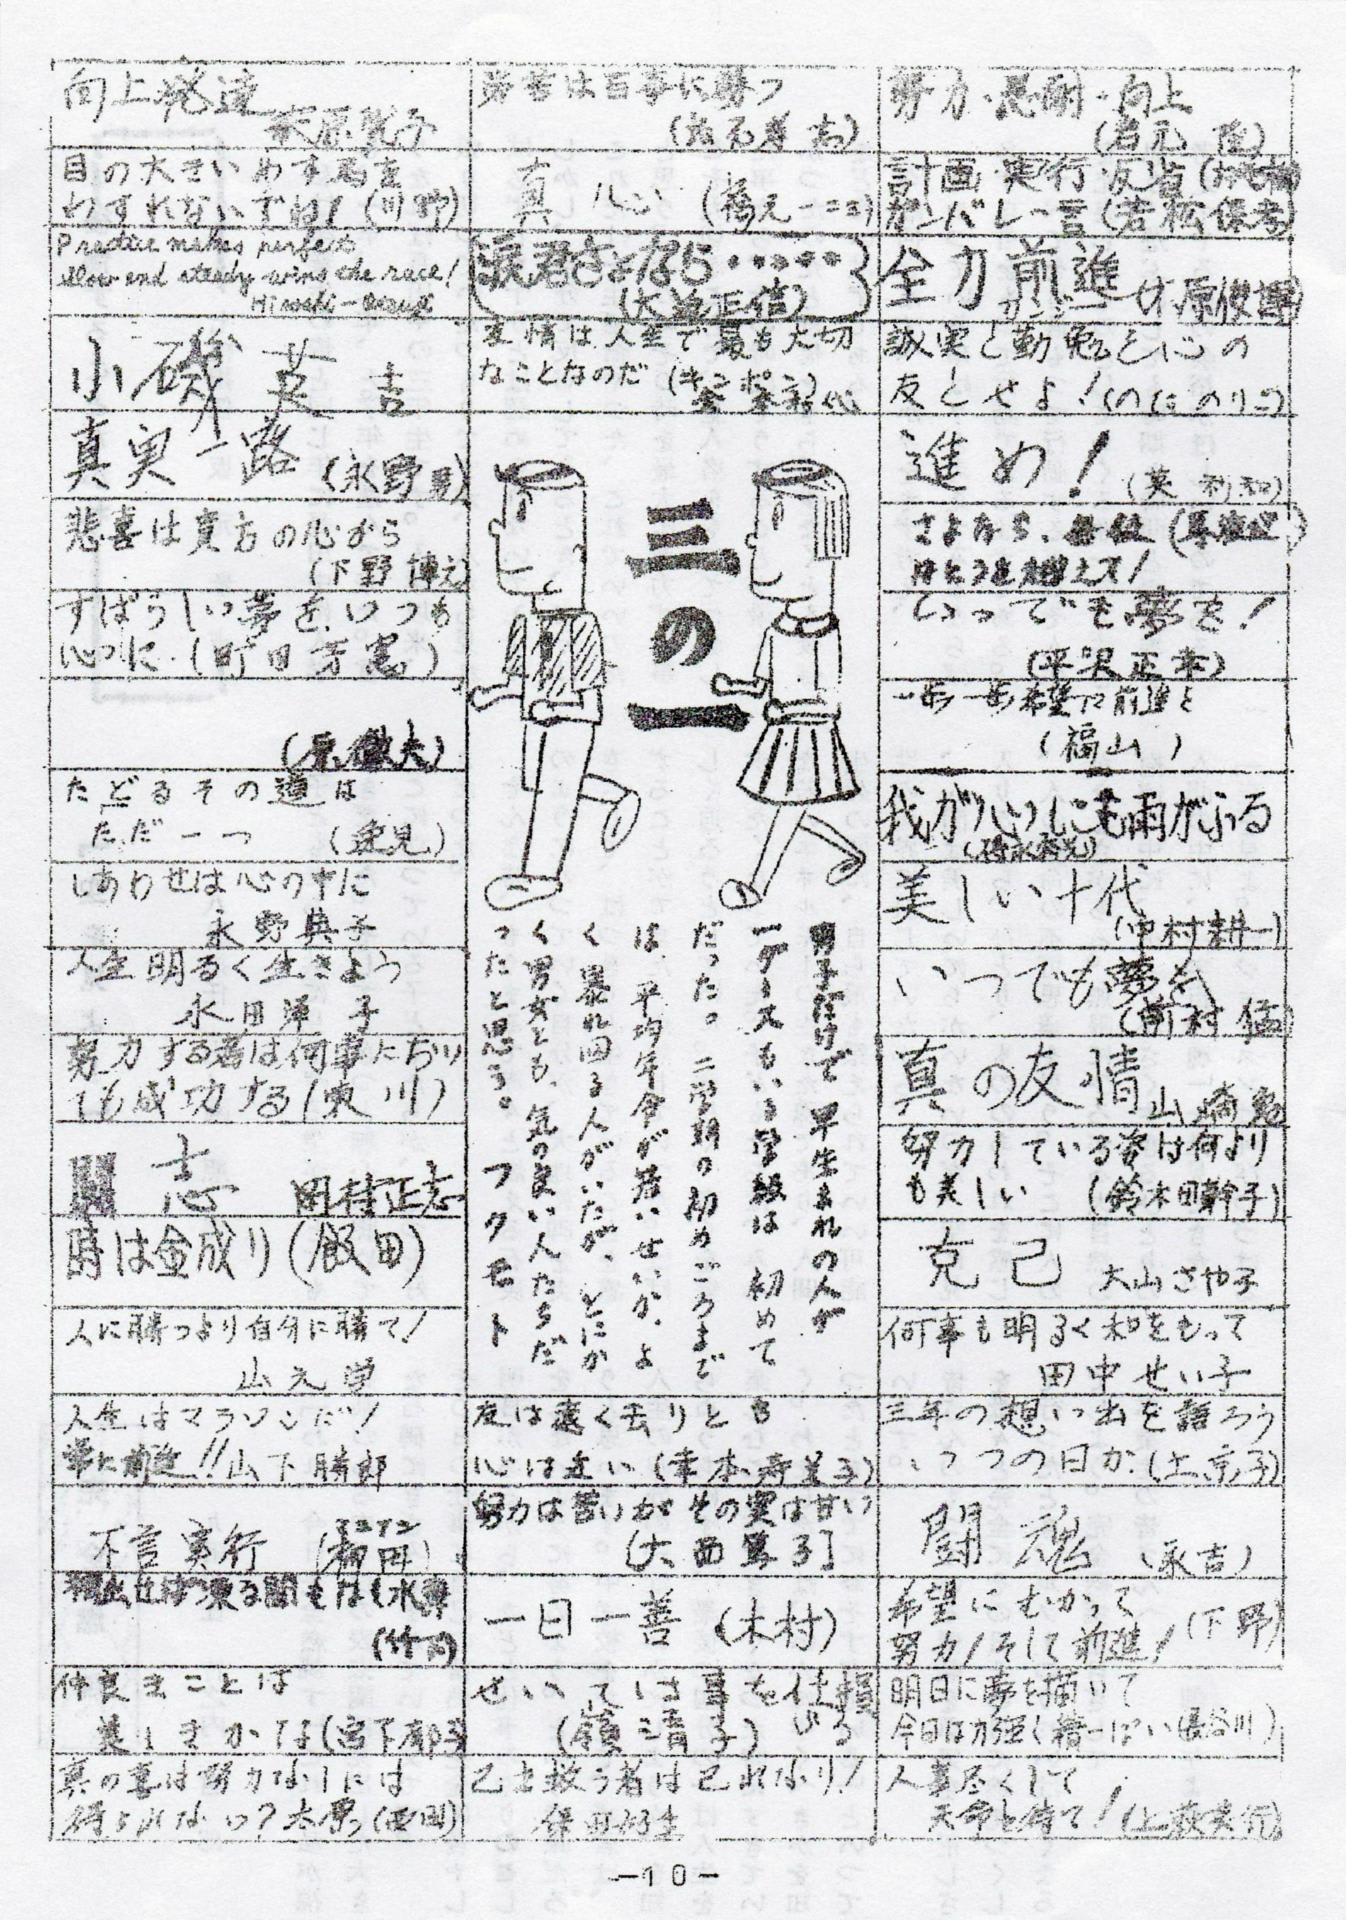 向上発達
目の大きいめす馬を
わすれないでね! (川野)
Practice makes perfect
slow and steady wins the race!
Hiroshi
小磯 英吉
真実一路 (永野 )
悲喜は貴方の心から
(下野 )
すばらしい夢を、いつも
心に (町田 芳憲)
(原 徹夫)
たどるその道は
ただ一つ (速見)
しあわせは心の中に
永野典子
人生明るく生きよう
永田洋子
努力する者は何事に
ても成功する (東川)
闘志 田村正志
時は金成り (飯田)
人に勝つより自分に勝て!
山元 学
人生はマラソンだ!
常に前進!! 山下勝郎
不言実行 (柳田)
仲良きことは
美しきかな (宮下郁子)
真の喜は努力なしには
得られない? 太原 (西田)
は百事に勝つ
真 心 (橋元一二三)
涙君さよなら・・・・・
(大迫正信)
友情は人生で最も大切
なことなのだ
三の一
男子だけで早生まれの人が
一ダースもいる学級は初めて
だった。二学期の初めごろまで
は、平均年令が若いせいか、よ
く暴れ回る人がいたが、とにか
く男女とも、気の良い人たちだ
ったと思う。 フクモト
度は遠く去りとも
心は近い (幸本寿美子)
努力は苦いがその実は甘い
(大西 子)
一日一善 (木村)
せいては事を仕損
じる
(嶺 清子)
己を救う者は己れなり!
保田好生
努力・忍耐・向上
(岩元 隆)
計画・実行・反省
ガンバレ一言 (若松保孝)
全力前進
誠実と勤勉と心の
友とせよ!
進め!
さよなら、
いつでも夢を!
(平沢正孝)
一歩一歩希望に前進と
(福山)
我が心にも雨がふる
美しい十代
(中村耕一)
いつでも夢を
(前村 猛)
真の友情 山崎勉
努力している姿は何より
も美しい (鈴木田幹子)
克己 大山さや子
何事も明るく和をもって
田中せい子
三年の想い出を語ろう
いつの日か (上京子)
闘魂 (永吉)
希望にむかって
努力!そして前進! (下野)
明日に夢を描いて
今日は力強く精一ぱい (長谷川)
人事尽くして
天命を待て!
-10-